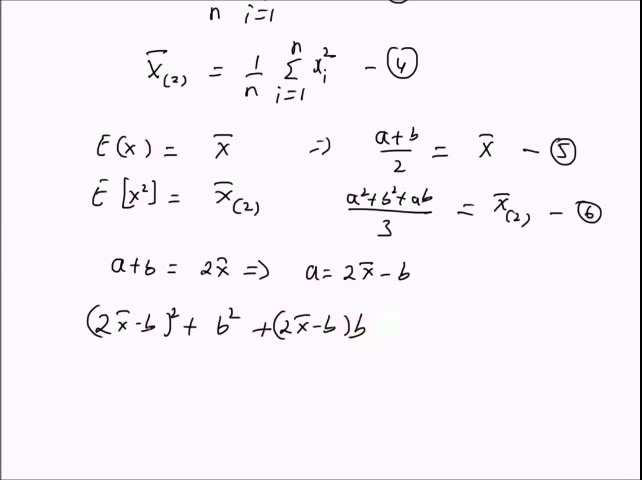 n i=1
x̄(2) = 1/n Σ(i=1 to n) xᵢ² – ④
E(x) = x̄ ⇒ (a+b)/2 = x̄ – ⑤
E[x²] = x̄(2) (a²+b²+ab)/3 = x̄(2) – ⑥
a+b = 2x̄ ⇒ a = 2x̄ – b
(2x̄-b)² + b² + (2x̄-b)b